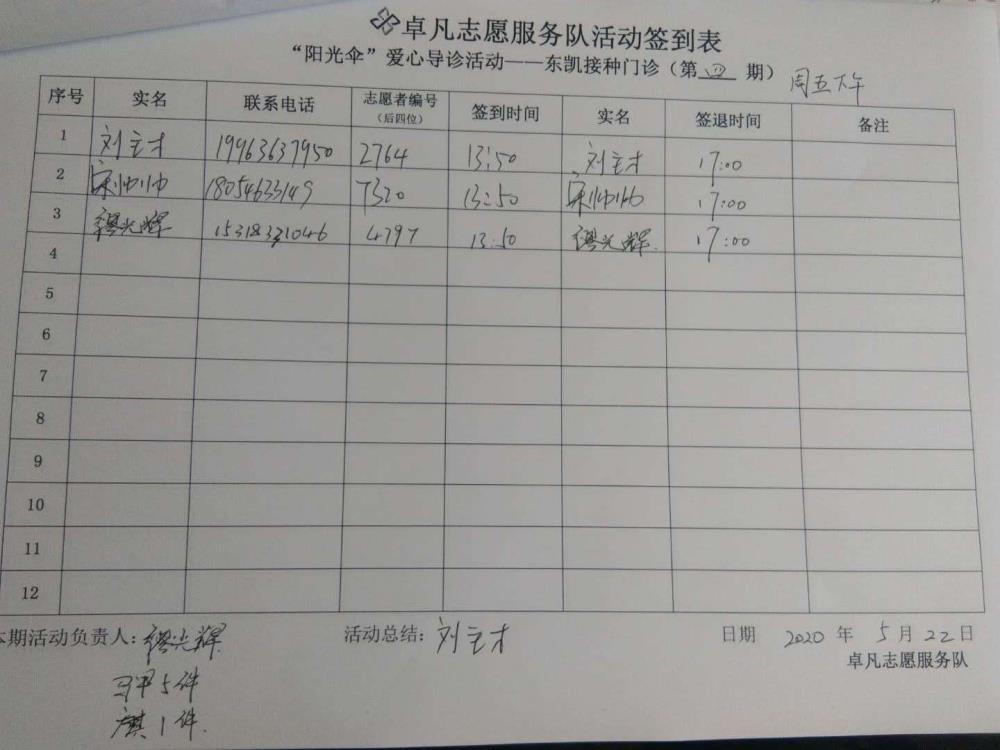 卓凡志愿服务队活动签到表
“阳光伞”爱心导诊活动——东凯接种门诊(第四期) 周五下午
序号 实名 联系电话 志愿者编号(后四位) 签到时间 实名 签退时间 备注
1 刘主才 19963637950 2764 13:50 刘主才 17:00
2 宋帅帅 18054633149 7320 13:50 宋帅帅 17:00
3 缪光辉 15318331046 4797 13:50 缪光辉 17:00
4
5
6
7
8
9
10
11
12
本期活动负责人:缪光辉 活动总结:刘主才 日期 2020 年 5 月 22 日
卓凡志愿服务队
马甲5件
旗1件.